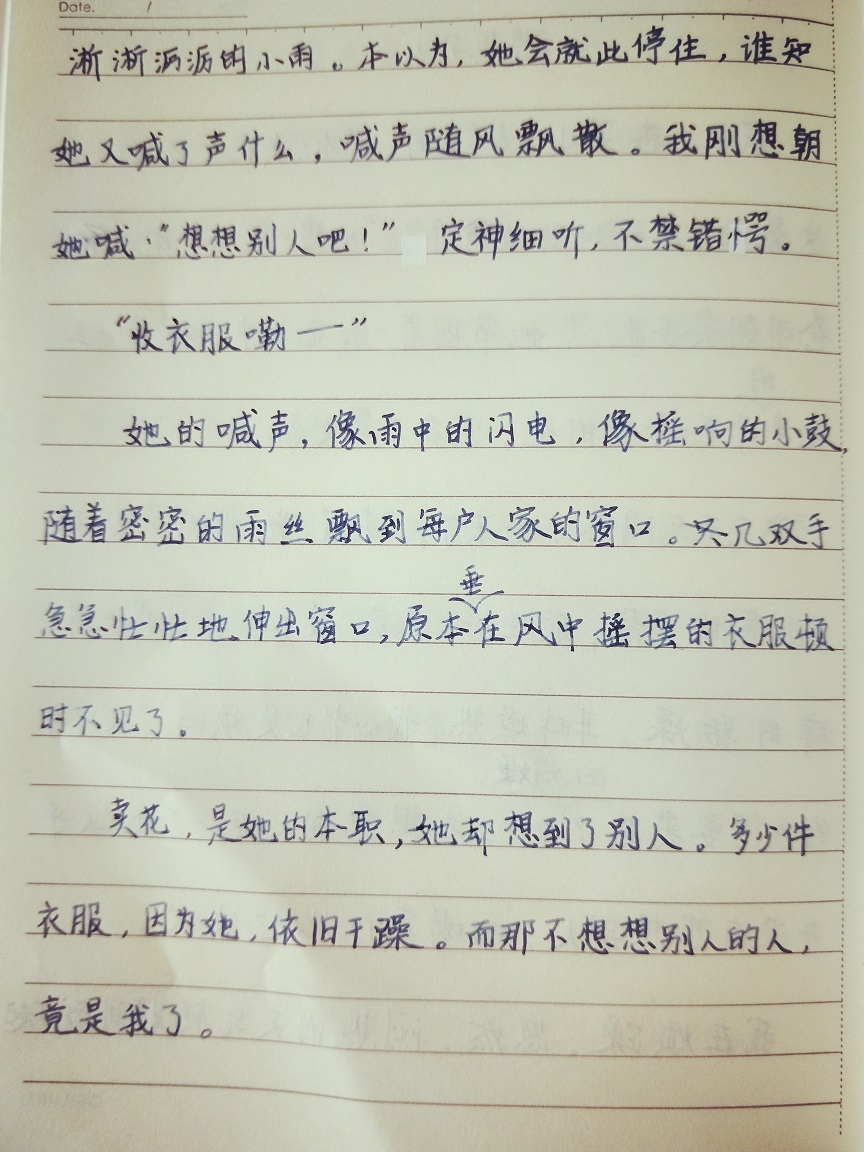 Date.        /
淅淅沥沥的小雨。本以为，她会就此停住，谁知
她又喊了声什么，喊声随风飘散。我刚想朝
她喊："想想别人吧！" 定神细听，不禁错愕。
"收衣服嘞——"
她的喊声，像雨中的闪电，像摇响的小鼓，
随着密密的雨丝飘到每户人家的窗口。只几双手
垂
急急忙忙地伸出窗口，原本在风中摇摆的衣服顿
时不见了。
卖花，是她的本职，她却想到了别人。多少件
衣服，因为她，依旧干躁。而那不想想别人的人，
竟是我了。